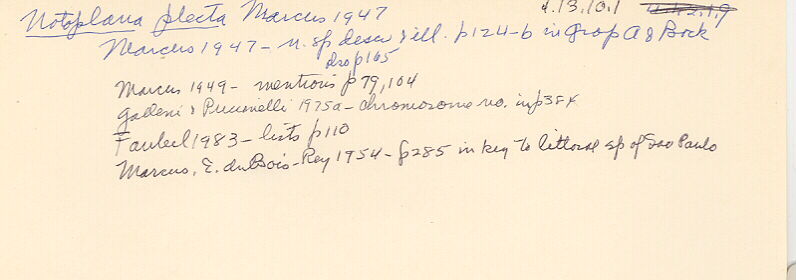 Notoplana plecta Marcus 1947 4.13.10.1
Marcus 1947 - n. sp descr & ill. p124-6 in group A of Bock
also p165
Marcus 1949 - mentions p 79, 104
Galleni & Puccinelli 1975a - chromosome no. in p384
Faubel 1983 - lists p110
Marcus, E. du Bois-Rey 1954 - p285 in key to littoral sp of Sao Paulo